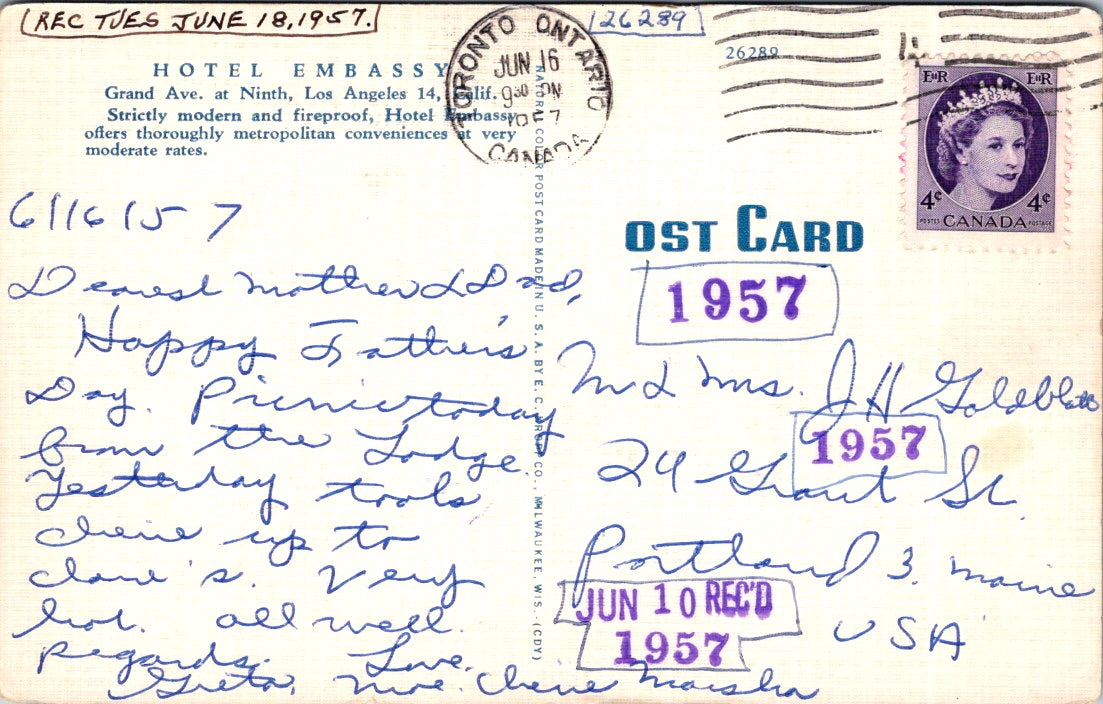 REC TUES JUNE 18, 1957.
126289
26289
TORONTO ONTARIO
JUN 16
9 30 PM
1957
CANADA
EIIR EIIR
4¢ 4¢
POSTES CANADA POSTAGE
HOTEL EMBASSY
Grand Ave. at Ninth, Los Angeles 14, Calif.
Strictly modern and fireproof, Hotel Embassy
offers thoroughly metropolitan conveniences at very
moderate rates.
NATURAL COLOR POST CARD MADE IN U. S. A. BY E. C. KROPP CO., MILWAUKEE, WIS. (CDY)
6/16/57
Dearest Mother & Dad,
Happy Father's
Day. Picnic today
from the Lodge.
Yesterday took
cherie up to
clare's. Very
hot. all well.
Regards. Love.
Greta, Moe. Cherie Marsha
OST CARD
1957
M & Mrs. J H Goldblatt
1957
24 Grant St.
Portland 3. Maine
USA
JUN 10 REC'D
1957